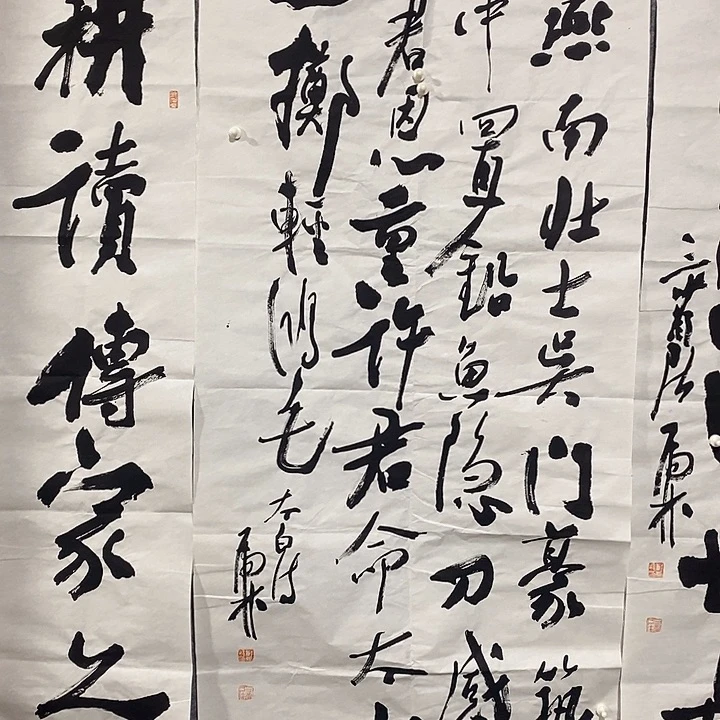 燕南壮士吳門豪筑
中置鉛魚隐刀感
君恩重許君命太
一擲輕鴻毛
太白诗
耕讀傳家之